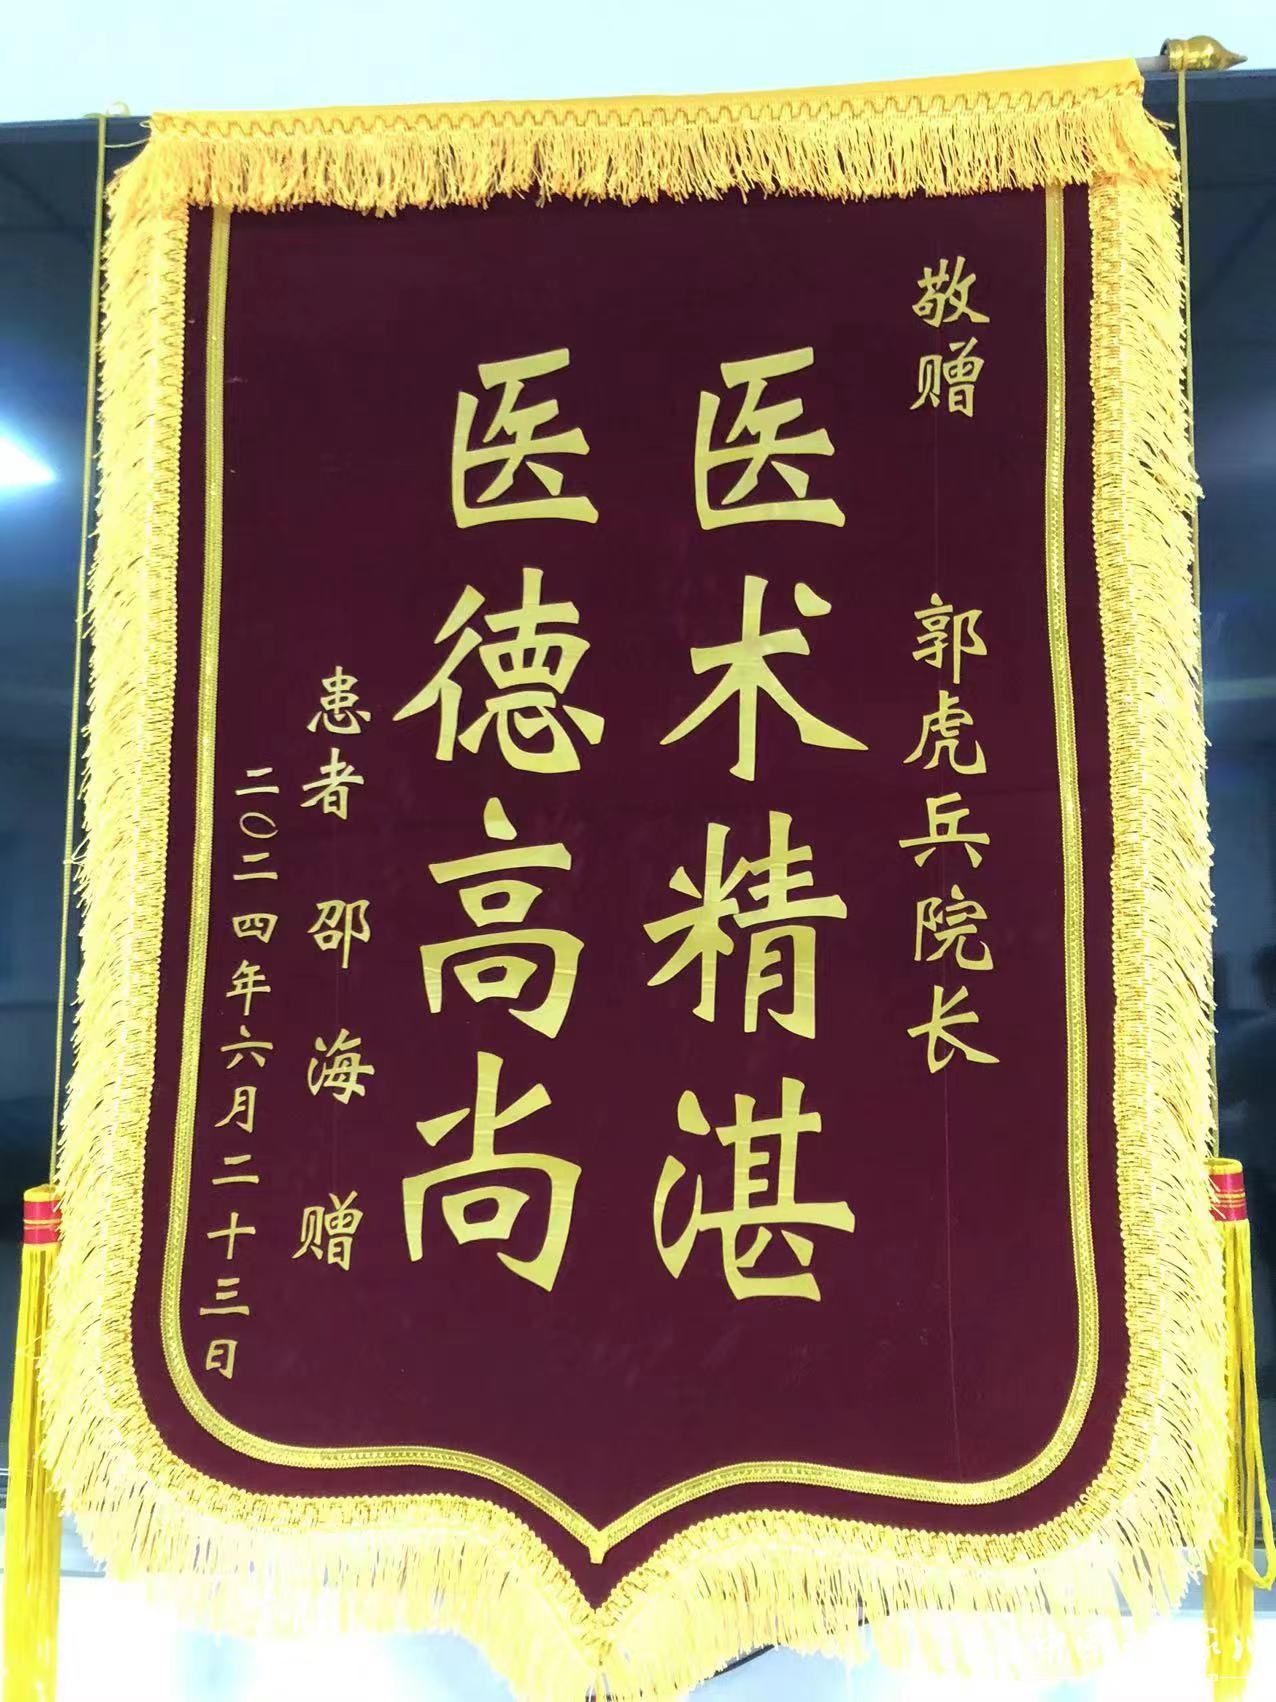 敬赠 郭虎兵院长
医术精湛
医德高尚
患者 邵海 赠
二〇二四年六月二十三日